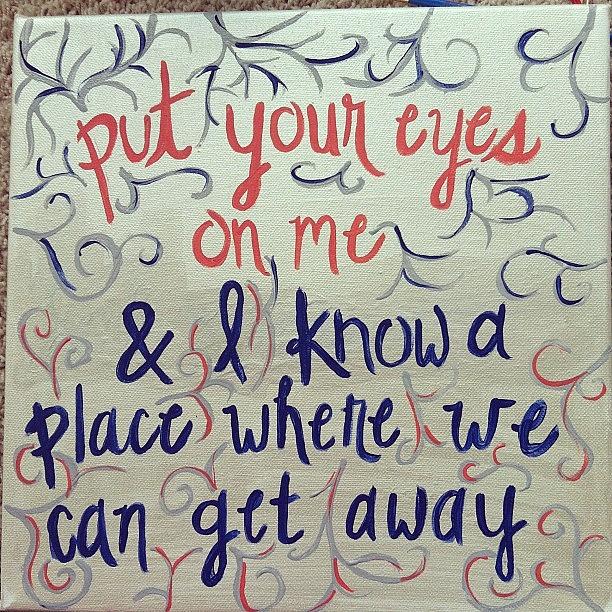 put your eyes
on me
& I know a
place where we
can get away